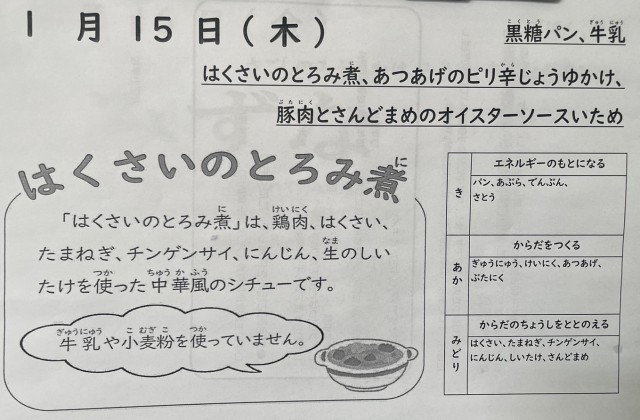 1月15日(木)
黒糖パン、牛乳
はくさいのとろみ煮、あつあげのピリ辛じょうゆかけ、
豚肉とさんどまめのオイスターソースいため
はくさいのとろみ煮
「はくさいのとろみ煮」は、鶏肉、はくさい、
たまねぎ、チンゲンサイ、にんじん、生のしい
たけを使った中華風のシチューです。
牛乳や小麦粉を使っていません。
き
エネルギーのもとになる
パン、あぶら、でんぷん、
さとう
あか
からだをつくる
ぎゅうにゅう、けいにく、あつあげ、
ぶたにく
みどり
からだのちょうしをととのえる
はくさい、たまねぎ、チンゲンサイ、
にんじん、しいたけ、さんどまめ